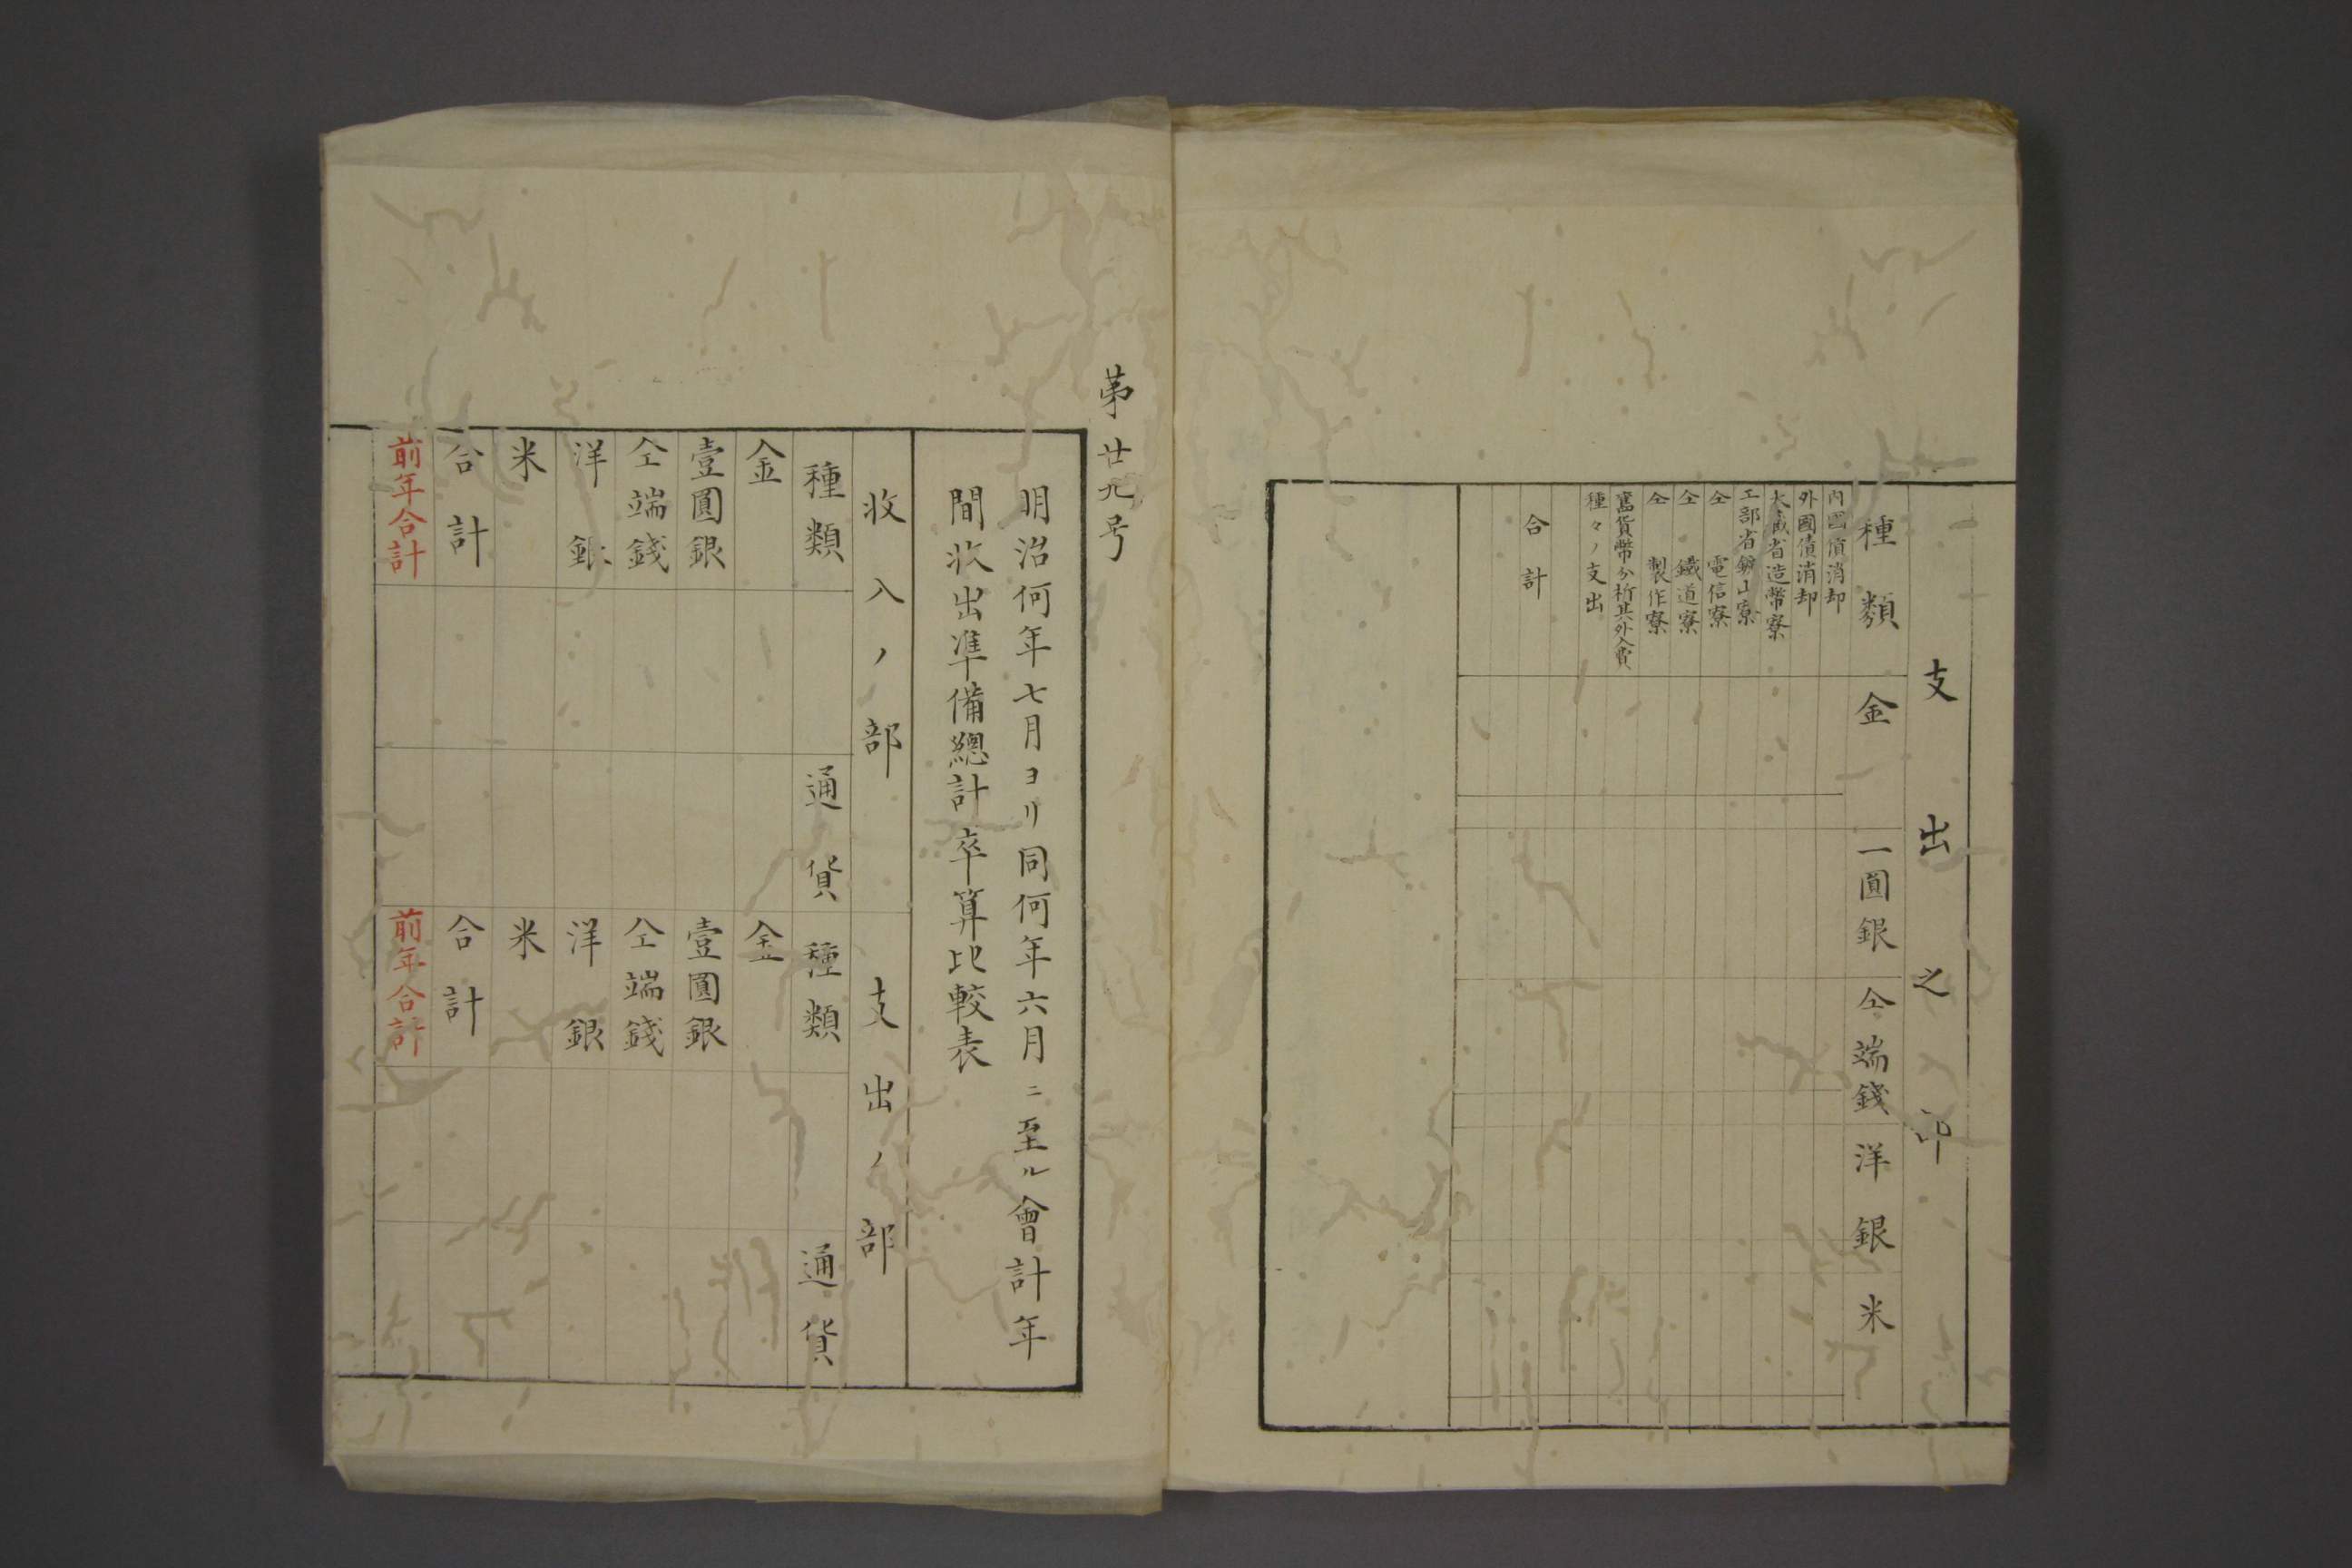 支出之部
種類 金 一圓銀 仝端錢 洋銀 米
内國債消却
外國債消却
大蔵省造幣寮
工部省鑛山寮
仝 電信寮
仝 鐵道寮
仝 製作寮
舊貨幣分析其外入費
種々ノ支出
合計
第廿九号
明治何年七月ヨリ同何年六月ニ至ル會計年
間收出準備總計卒算比較表
收入ノ部 支出ノ部
種類 通貨 種類 通貨
金 金
壹圓銀 壹圓銀
仝端錢 仝端錢
洋銀 洋銀
米 米
合計 合計
前年合計 前年合計